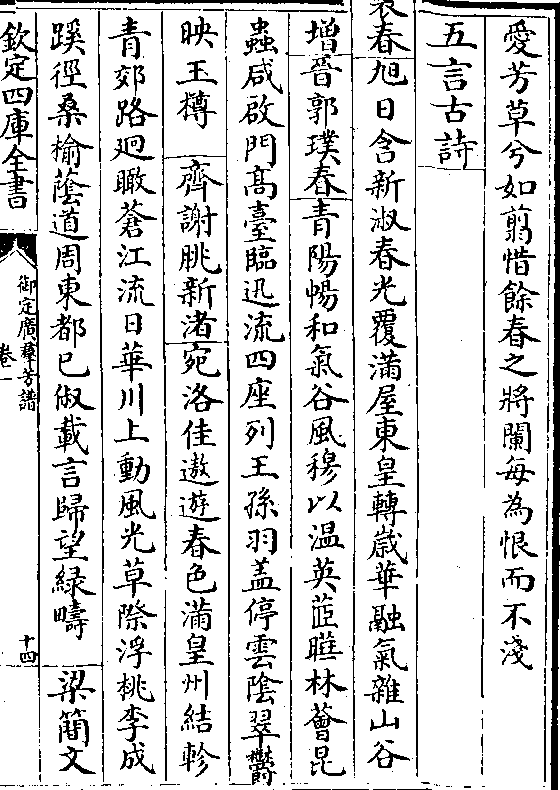 愛芳草兮如翦惜餘春之將闌每為恨而不淺
五言古詩
春旭日含新淑春光覆滿屋東皇轉歲華融氣雜山谷
增晉郭璞春青陽暢和氣谷風穆以温英茝曄林薈昆
蟲咸啟門髙臺臨迅流四座列王孫羽盖停雲陰翠欝
映玉樽 齊謝朓新渚宛洛佳遨遊春色滿皇州結軫
青郊路迥瞰蒼江流日華川上動風光草際浮桃李成
蹊徑桑榆蔭道周東都已俶載言歸望綠疇 梁簡文
欽定四庫全書 御定廣羣芳譜 卷一 十四